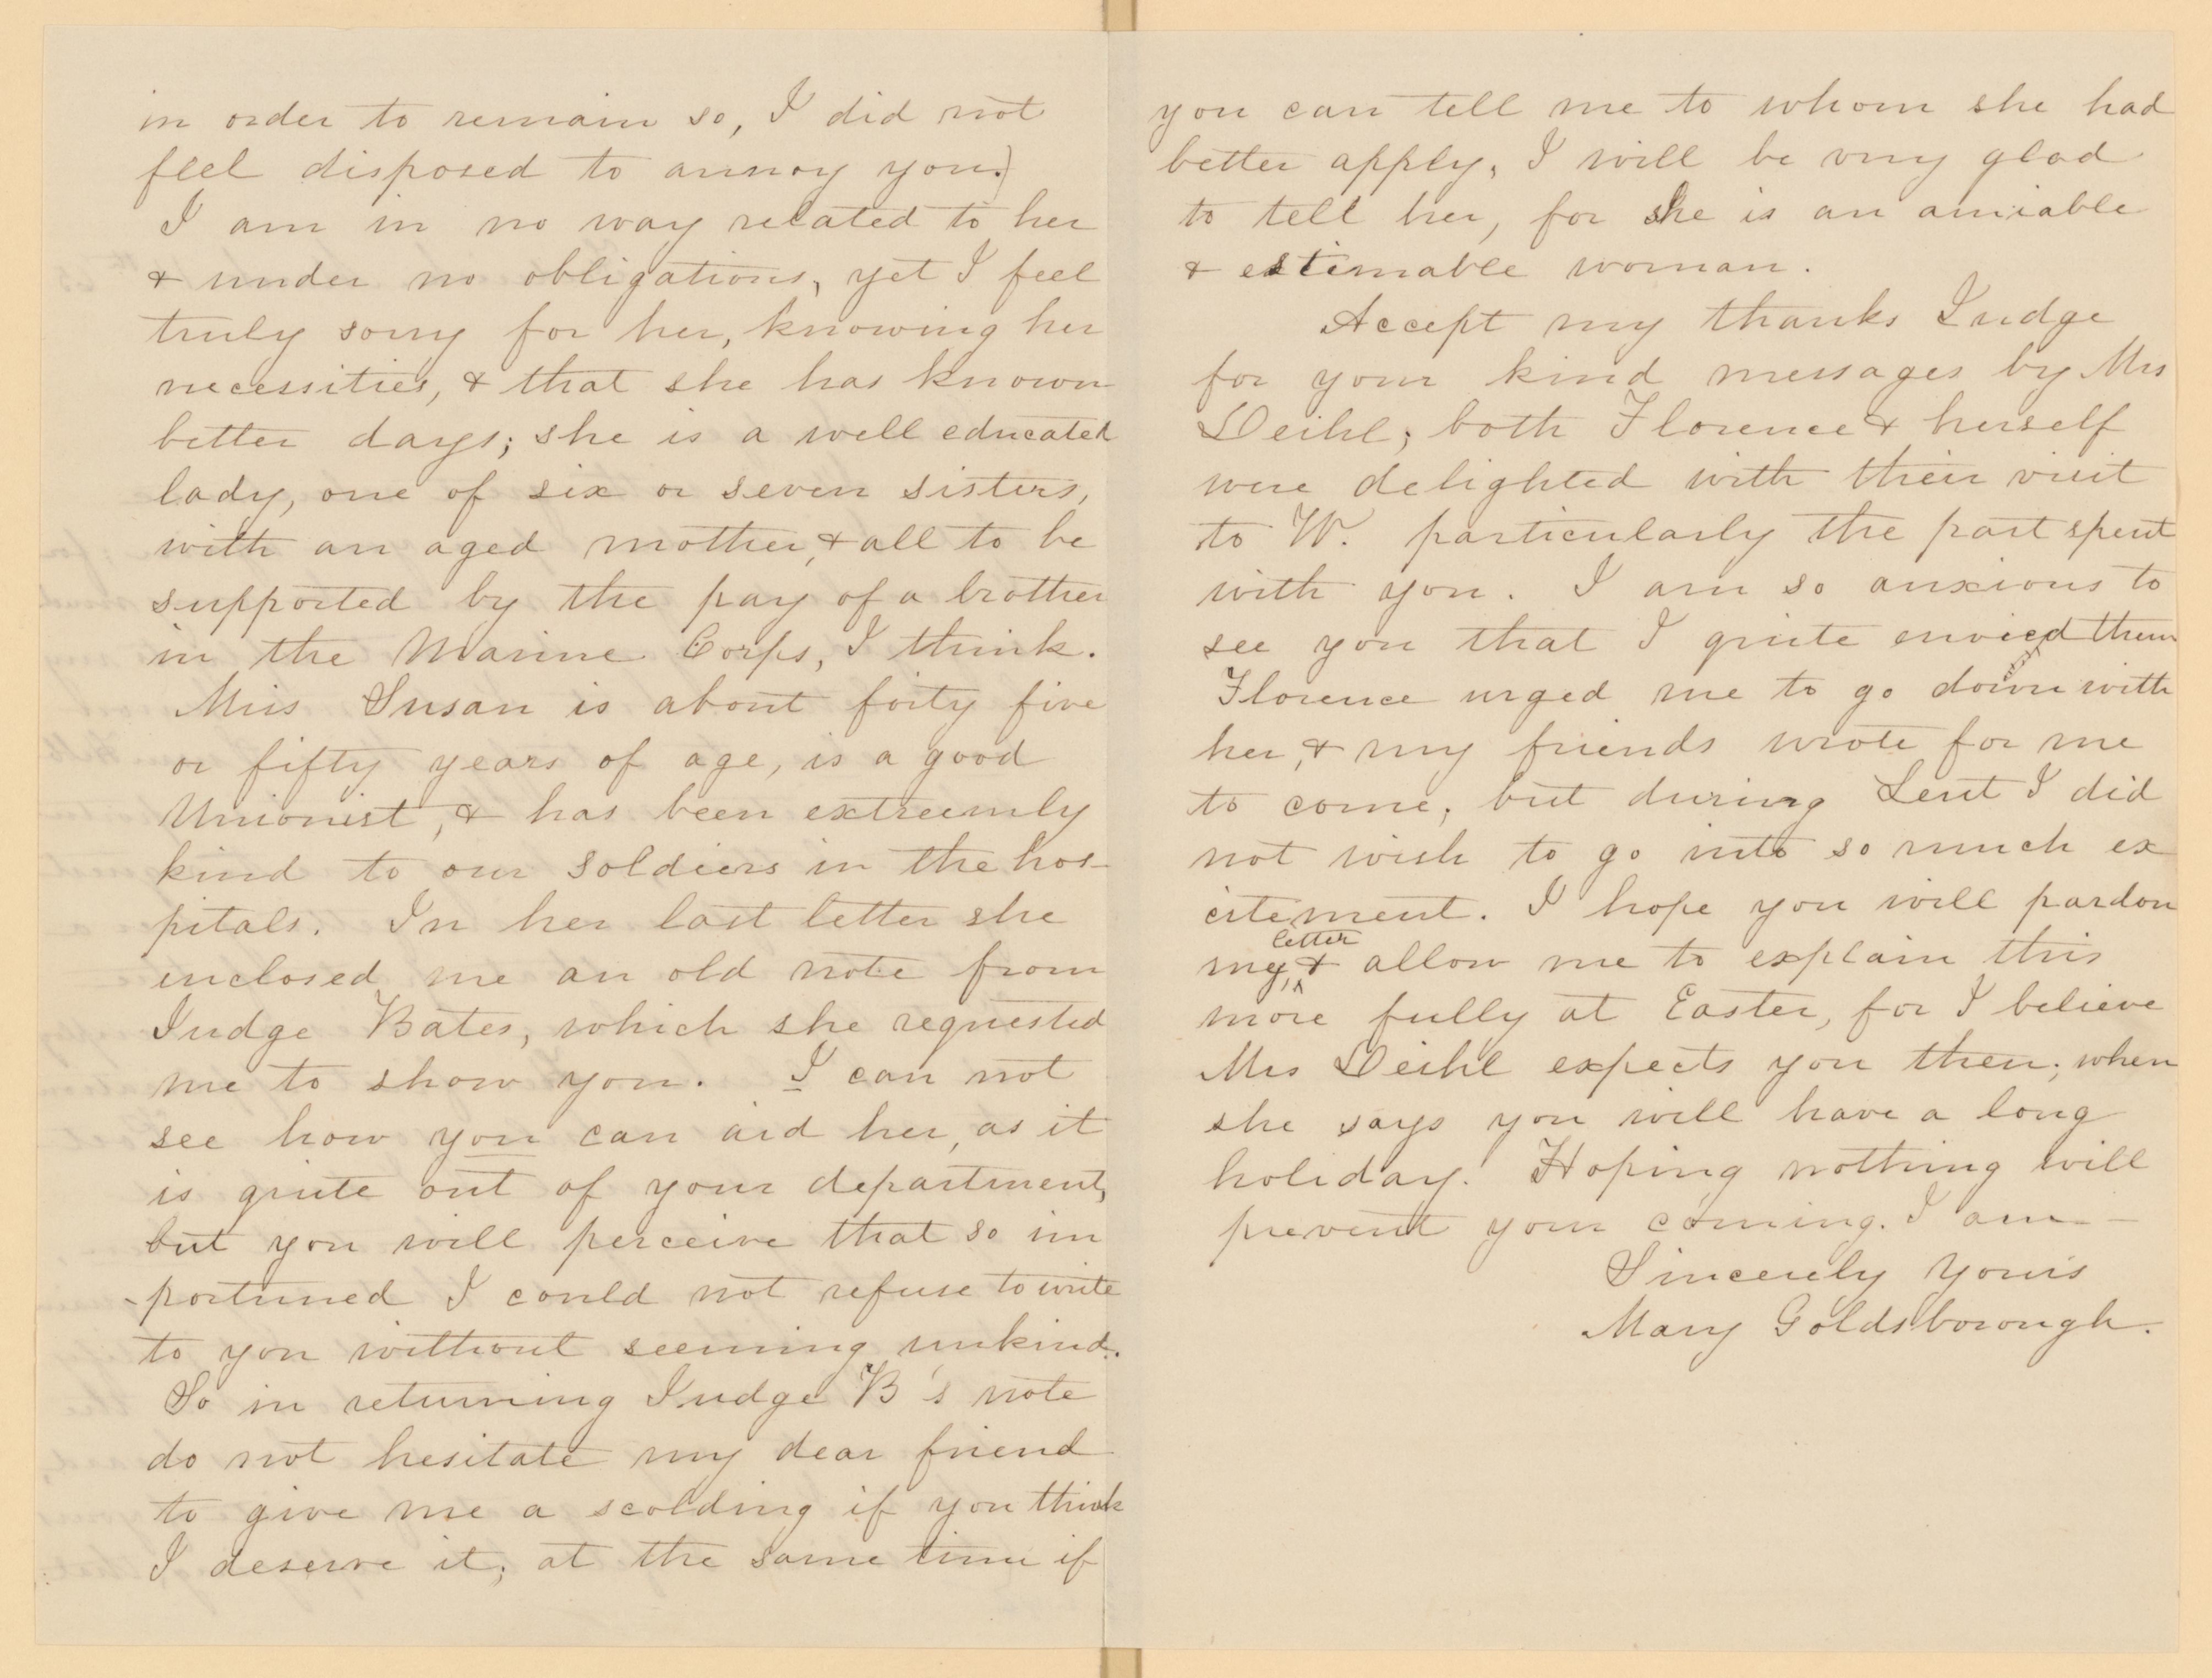 in order to remain so, I did not
feel disposed to annoy you.)
I am in no way related to her
& under no obligations, yet I feel
truly sorry for her, knowing her
necessities, & that she has known
better days; she is a well educated
lady, one of six or seven sisters,
with an aged mother, & all to be
supported by the pay of a brother
in the Marine Corps, I think.
Miss Susan is about forty five
or fifty years of age, is a good
Unionist, & has been extreemly
kind to our soldiers in the hos-
pitals. In her last letter she
enclosed me an old note from
Judge Bates, which she requested
me to show you. I can not
see how you can aid her, as it
is quite out of your department,
but you will perceive that so im
-portuned I could not refuse to write
to you without seeming unkind.
So in returning Judge B's note
do not hesitate my dear friend
to give me a scolding if you think
I deserve it; at the same time if
you can tell me to whom she had
better apply, I will be very glad
to tell her, for she is an amiable
& estimable woman.
Accept my thanks Judge
for your kind messages by Mrs
Deihl; both Florence & herself
were delighted with their visit
to W. particularly the part spent
with you. I am so anxious to
see you that I quite envied them
Florence urged me to go down with
her, & my friends wrote for me
to come, but during Lent I did
not wish to go into so much ex
citement. I hope you will pardon
my letter, & allow me to explain this
more fully at Easter, for I believe
Mrs Deihl expects you then; when
she says you will have a long
holiday. Hoping nothing will
prevent your coming. I am—
Sincerely Yours
Mary Goldsborough.